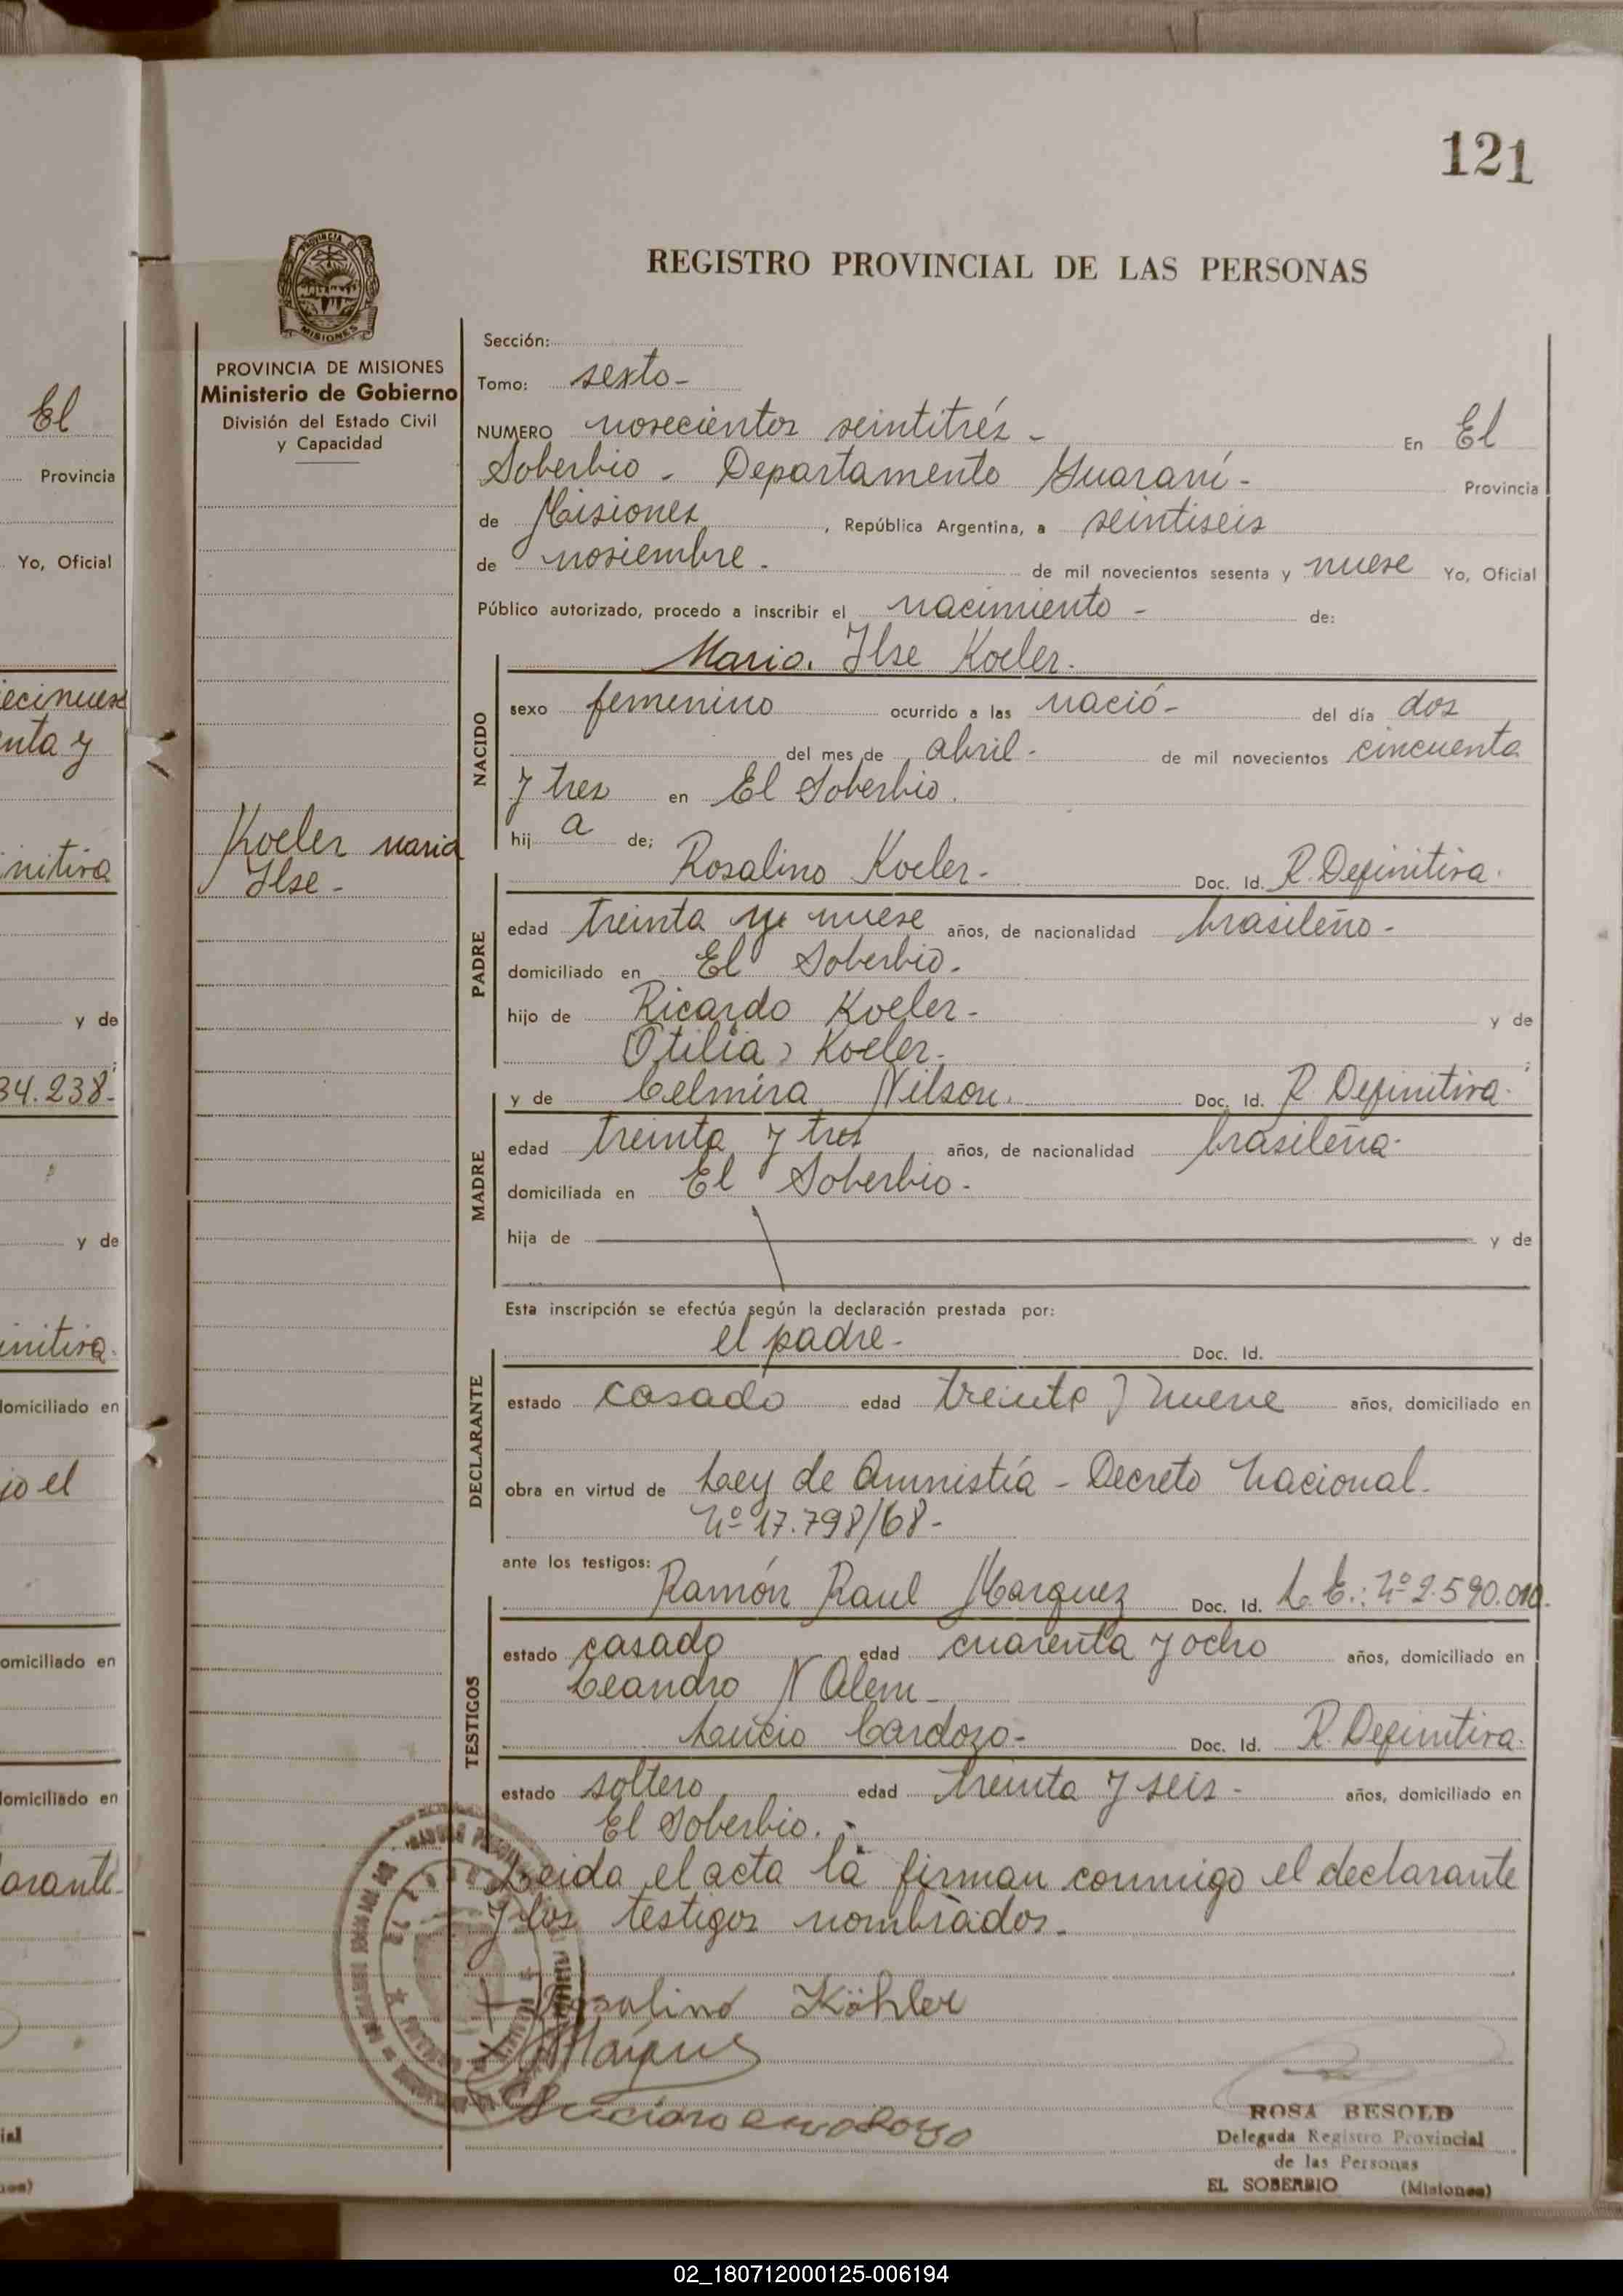 121
REGISTRO PROVINCIAL DE LAS PERSONAS
PROVINCIA DE MISIONES
Ministerio de Gobierno
División del Estado Civil
y Capacidad
Koeler Maria
Ilse -
Sección:
Tomo: sexto -
NUMERO novecientos veintitrés - En El
Soberbio - Departamento Guaraní - Provincia
de Misiones, República Argentina, a veintiseis
de noviembre - de mil novecientos sesenta y nueve Yo, Oficial
Público autorizado, procedo a inscribir el nacimiento - de:
Maria Ilse Koeler.
NACIDO
sexo femenino ocurrido a las nació - del día dos
del mes de abril - de mil novecientos cincuenta
y tres en El Soberbio.
hij a de;
Rosalino Koeler - Doc. Id. R. Definitiva.
PADRE
edad treinta y nueve años, de nacionalidad brasileño -
domiciliado en El Soberbio -
hijo de Ricardo Koeler - y de
Otilia Koeler -
y de Celmira Nilson. Doc. Id. R. Definitiva.
MADRE
edad treinta y tres años, de nacionalidad brasileña -
domiciliada en El Soberbio -
hija de y de
Esta inscripción se efectúa según la declaración prestada por:
el padre - Doc. Id.
DECLARANTE
estado casado edad treinta y nueve años, domiciliado en
obra en virtud de Ley de Amnistía - Decreto Nacional -
Nº 17.798/68 -
ante los testigos:
Ramón Raul Marquez Doc. Id. L. E.: Nº 2.590.010.
TESTIGOS
estado casado edad cuarenta y ocho años, domiciliado en
Leandro N Alem -
Lucio Cardozo - Doc. Id. R. Definitiva.
estado soltero edad treinta y seis - años, domiciliado en
El Soberbio. -
Leida el acta la firman conmigo el declarante
y los testigos nombrados -
Rosalino Köhler
ROSA BESOLD
Delegada Registro Provincial
de las Personas
EL SOBERBIO (Misiones)
El
Provincia
Yo, Oficial
nta y
nitiva
y de
34.238 -
y de
nitiva.
domiciliado en
jo el
omiciliado en
domiciliado en
arante -
02_180712000125-006194